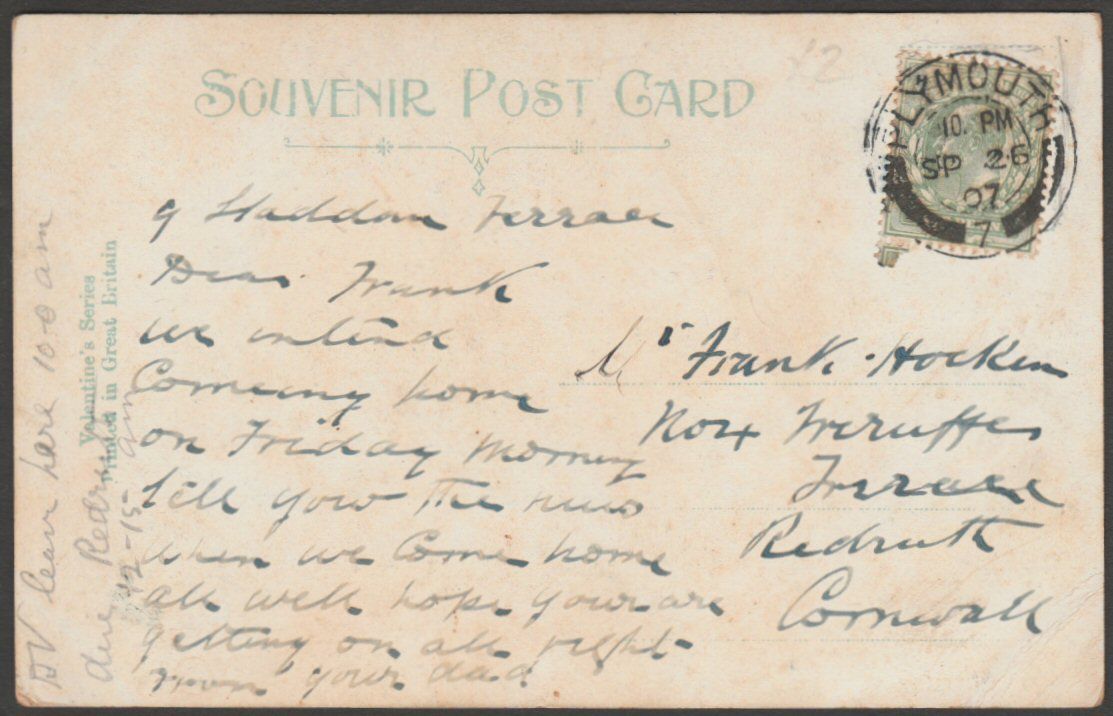 SOUVENIR POST CARD
x2
PLYMOUTH
10. PM
SP 26
07
7
9 Haddon Terrace
Dear Frank
we intend
Comeing home
on Friday Morning
tell your the news
when we Come home
all well hope your are
getting on all right
From your dad
Mr Frank Hocken
No 4 Treruffe
Terrace
Redruth
Cornwall
DV leave here 10-0 am
due Redruth
12-15
Valentine's Series
Printed in Great Britain